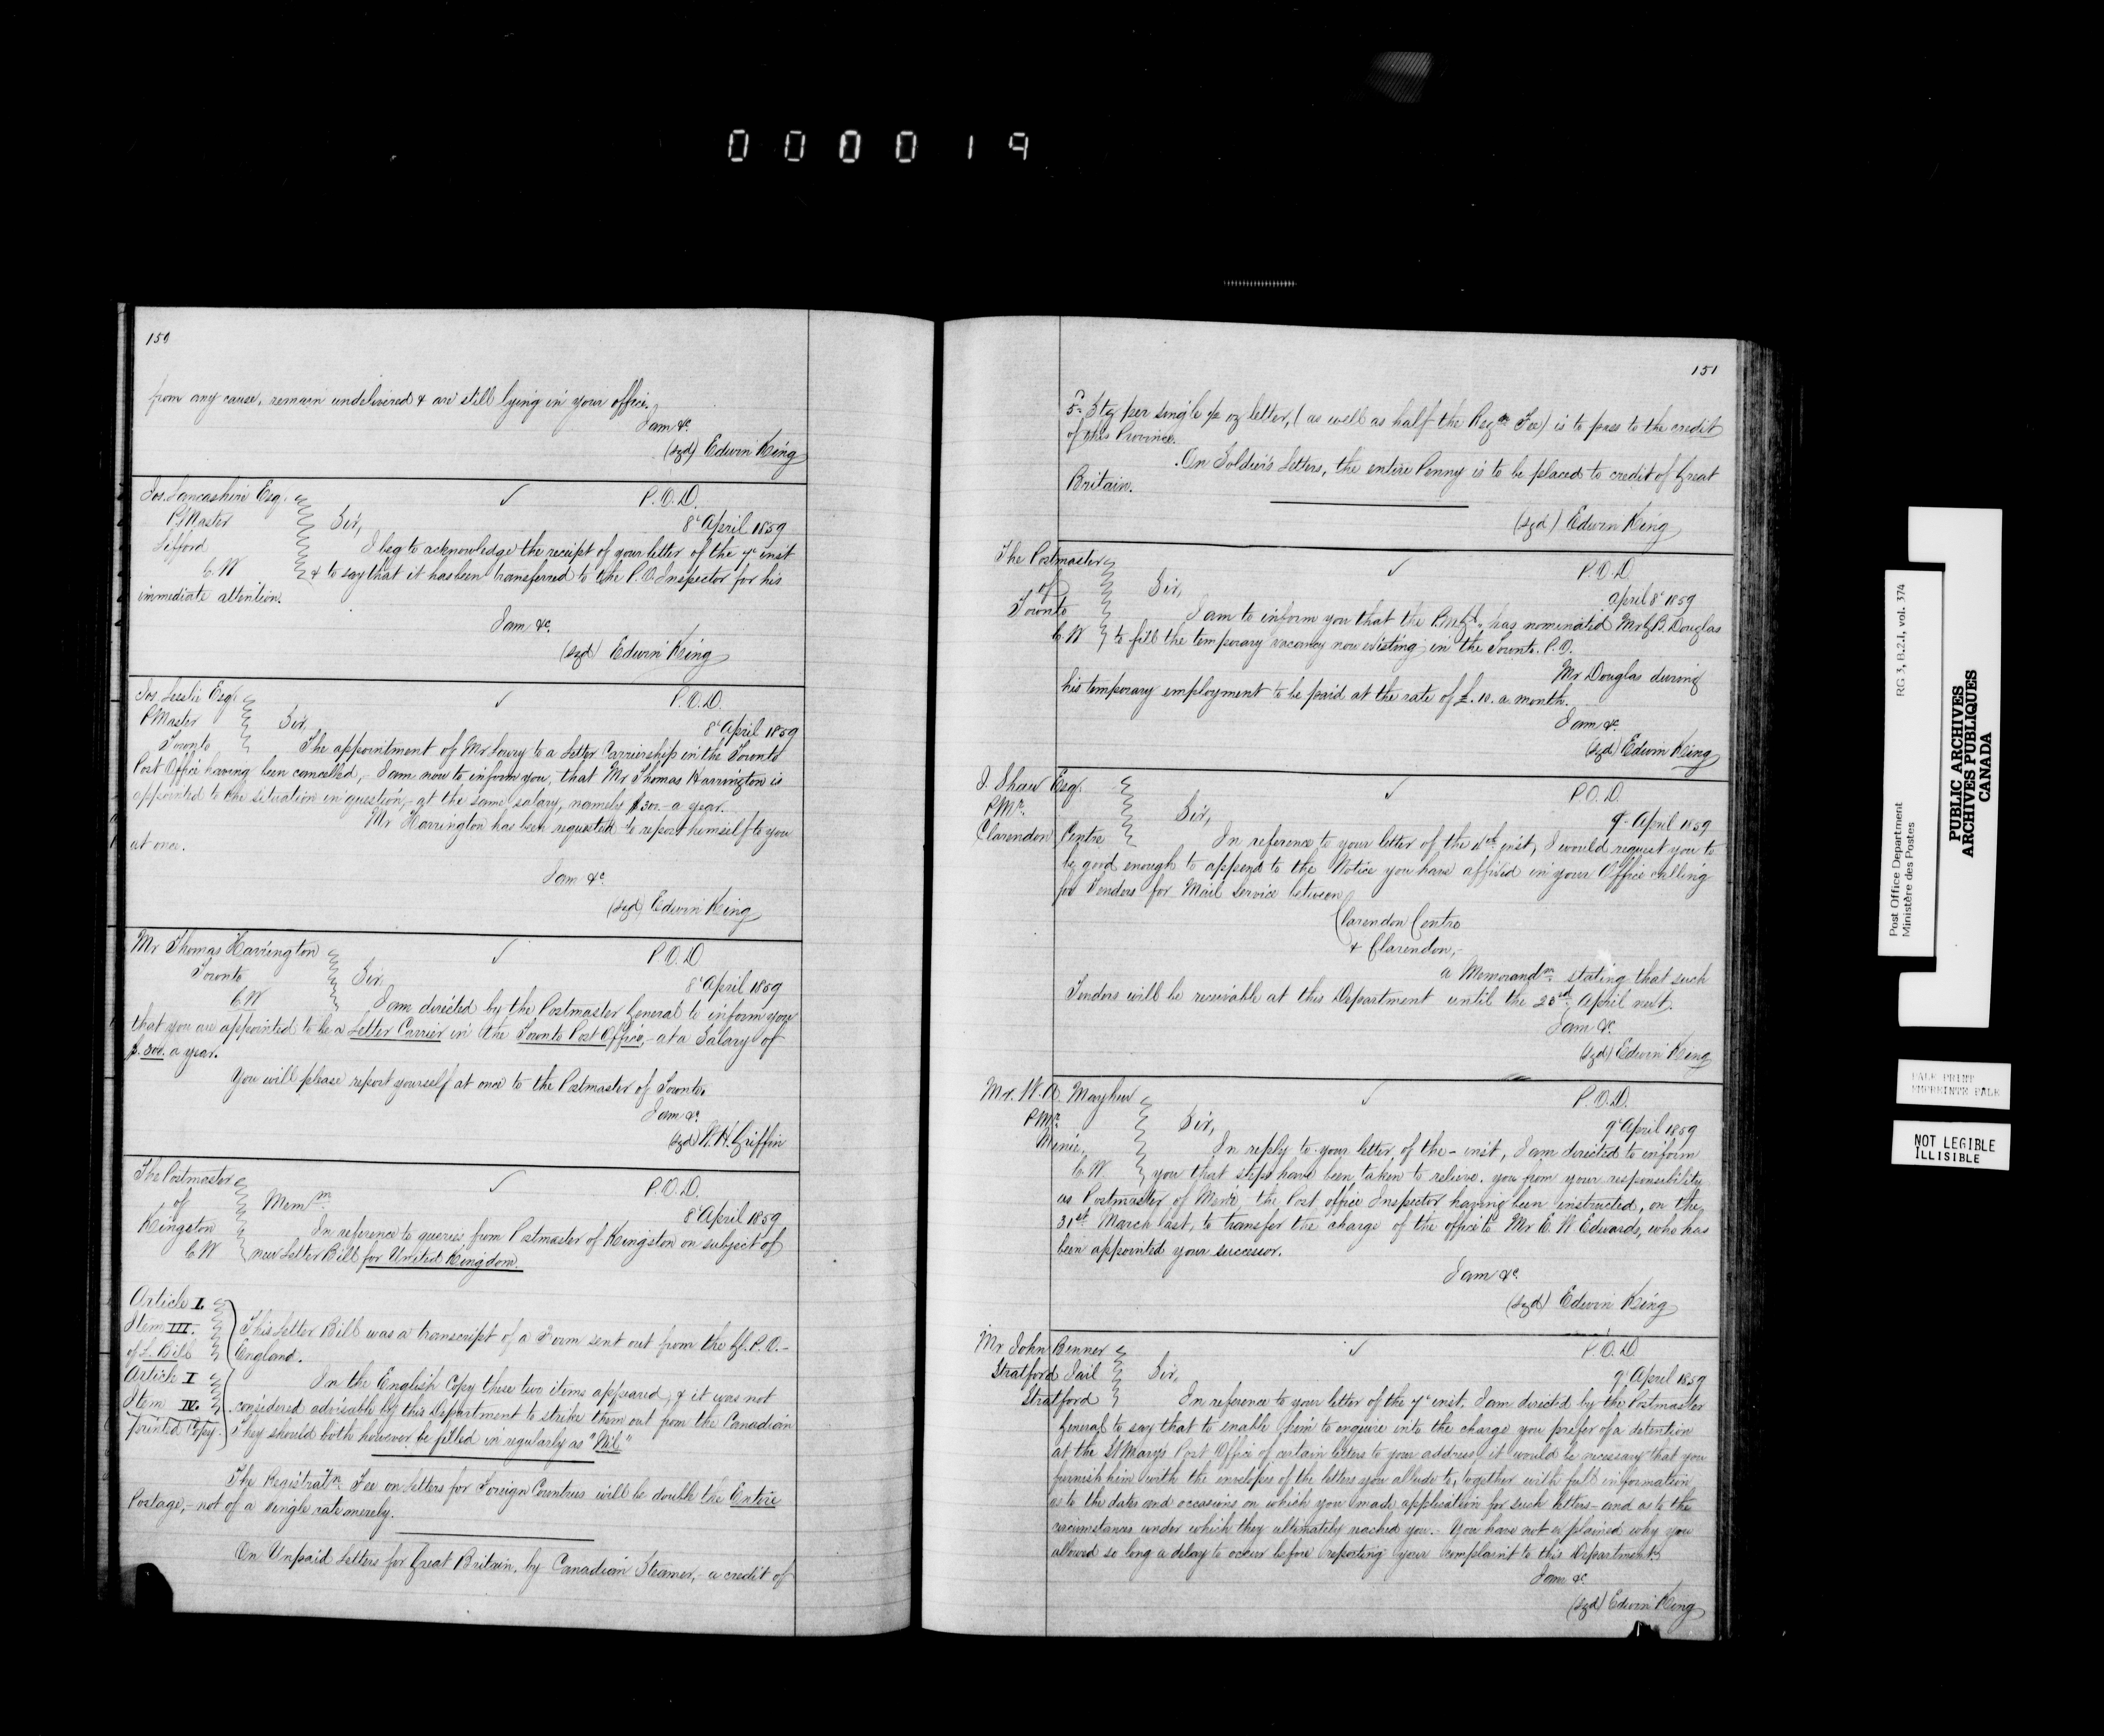 000019
150
from any cause, remain undelivered & are still lying in your office.
I am &c.
(sgd) Edwin King
Jos. Lancashire Esq.
P Master
Lifford
C. W
✓
P. O. D.
8 April 1859
Sir,
I beg to acknowledge the receipt of your letter of the 7 inst
& to say that it has been transferred to the P. O. Inspector for his
immediate attention.
I am &c.
(sgd) Edwin King
Jos. Leslie Esq.
P Master
Toronto
✓
P. O. D.
8 April 1859
Sir,
The appointment of Mr. Lowry to a Letter Carriership in the Toronto
Post Office having been cancelled, - I am now to inform you, that Mr Thomas Harrington is
appointed to the situation in question, - at the same salary, namely $300. - a year.
Mr Harrington has been requested to report himself to you
at once.
I am &c.
(sgd) Edwin King
Mr Thomas Harrington
Toronto
C. W
✓
P. O. D
8 April 1859
Sir,
I am directed by the Postmaster General to inform you
that you are appointed to be a Letter Carrier in the Toronto Post Office, - at a Salary of
$. 300. a year.
You will please report yourself at once to the Postmaster of Toronto.
I am &c.
(sgd) W. H. Griffin
The Postmaster
of
Kingston
C. W
✓
P. O. D.
8 April 1859
Mem m.
In reference to queries from Postmaster of Kingston on subject of
new Letter Bill for United Kingdom.
Article I.
Item III.
of L. Bill
This Letter Bill was a transcript of a Form sent out from the Gl. P. O. -
England.
Article I
Item IV.
printed Copy.
In the English Copy these two items appeared, & it was not
considered advisable by this Department to strike them out from the Canadian
They should both however be filled in regularly as "Nil"
The Registratn. Fee on Letters for Foreign Countries will be double the Entire
Postage, - not of a single rate merely.
On Unpaid Letters for Great Britain, by Canadian Steamer, - a credit of
151
5d Stg per single ½ oz letter, (as well as half the Regn Fee) is to pass to the credit
of this Province.
On Soldier's Letters, the entire Penny is to be placed to credit of Great
Britain.
(sgd) Edwin King
The Postmaster
of
Toronto
C. W
✓
P. O. D
April 8 1859
Sir,
I am to inform you that the P M Gl. has nominated Mr G. B. Douglas
to fill the temporary vacancy now existing in the Toronto. P. O.
Mr Douglas during
his temporary employment to be paid at the rate of £. 10. a month.
I am &c.
(sgd) Edwin King
J. Shaw Esq.
P Mr.
Clarendon Centre
✓
P. O. D.
9 April 1859
Sir,
In reference to your letter of the inst, I would request you to
be good enough to append to the Notice you have affixed in your Office calling
for Tenders for Mail Service between
Clarendon Centre
& Clarendon, -
a Memorandm. stating that such
Tenders will be receivable at this Department until the April next.
I am &c.
(sgd) Edwin King
Mr. W. A. Mayhew
P Mr.
Menie.
C. W.
✓
P. O. D.
9 April 1859
Sir,
In reply to your letter of the - inst, I am directed to inform
you that steps have been taken to relieve you from your responsibility
as Postmaster of Menie, the Post office Inspector having been instructed, on the
31st March last, to transfer the charge of the office to Mr E. W Edwards, who has
been appointed your successor.
I am &c.
(sgd) Edwin King
Mr John Benner
Stratford Jail
Stratford
✓
P. O. D
9 April 1859
Sir,
In reference to your letter of the 7 inst. I am direct'd by the Postmaster
General to say that to enable him to enquire into the charge you prefer of a detention
at the St Mary's Post Office of certain letters to your address, it would be necessary that you
furnish him with the envelopes of the letters you allude to, together with full information
as to the dates and occasions on which you made application for such letters - and as to the
circumstances under which they ultimately reached you. - You have not explained why you
allowed so long a delay to occur before reporting your complaint to this Department.
I am &c.
(sgd) Edwin King
Post Office Department
Ministère des Postes
RG 3, B.2.1, vol. 374
PUBLIC ARCHIVES
ARCHIVES PUBLIQUES
CANADA
PALE PRINT
EMPREINTE PALE
NOT LEGIBLE
ILLISIBLE